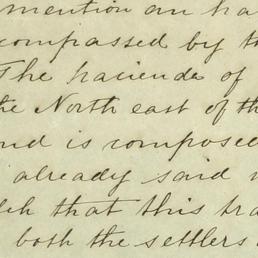 mention an ha
compassed by t
The hacienda of
the North east of th
nd is composed
already said
ch that this tra
both the settlers